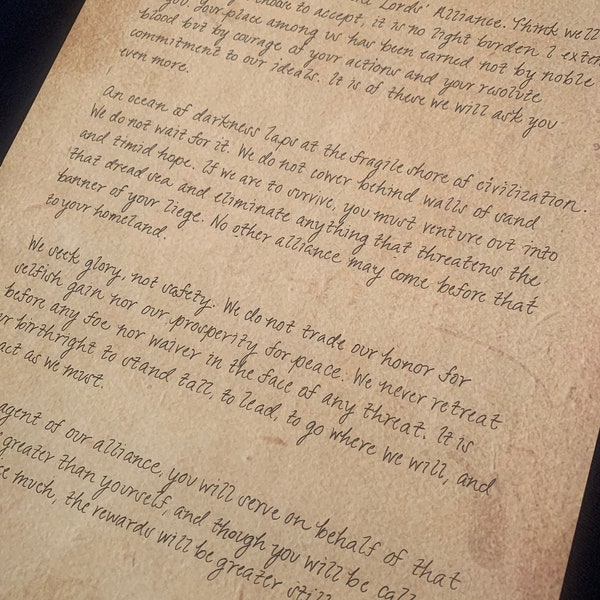 Lords' Alliance. Think well
choose to accept, it is no light burden I exten
you. Your place among us has been earned not by noble
blood but by courage of your actions and your resolute
commitment to our ideals. It is of these we will ask you
even more.
An ocean of darkness laps at the fragile shore of civilization.
We do not wait for it. We do not cower behind walls of sand
and timid hope. If we are to survive, you must venture out into
that dread sea and eliminate anything that threatens the
banner of your liege. No other alliance may come before that
to your homeland.
We seek glory, not safety. We do not trade our honor for
selfish gain nor our prosperity for peace. We never retreat
before any foe nor waiver in the face of any threat. It is
ur birthright to stand tall, to lead, to go where we will, and
act as we must.
agent of our alliance, you will serve on behalf of that
greater than yourself, and though you will be call
ce much, the rewards will be greater still